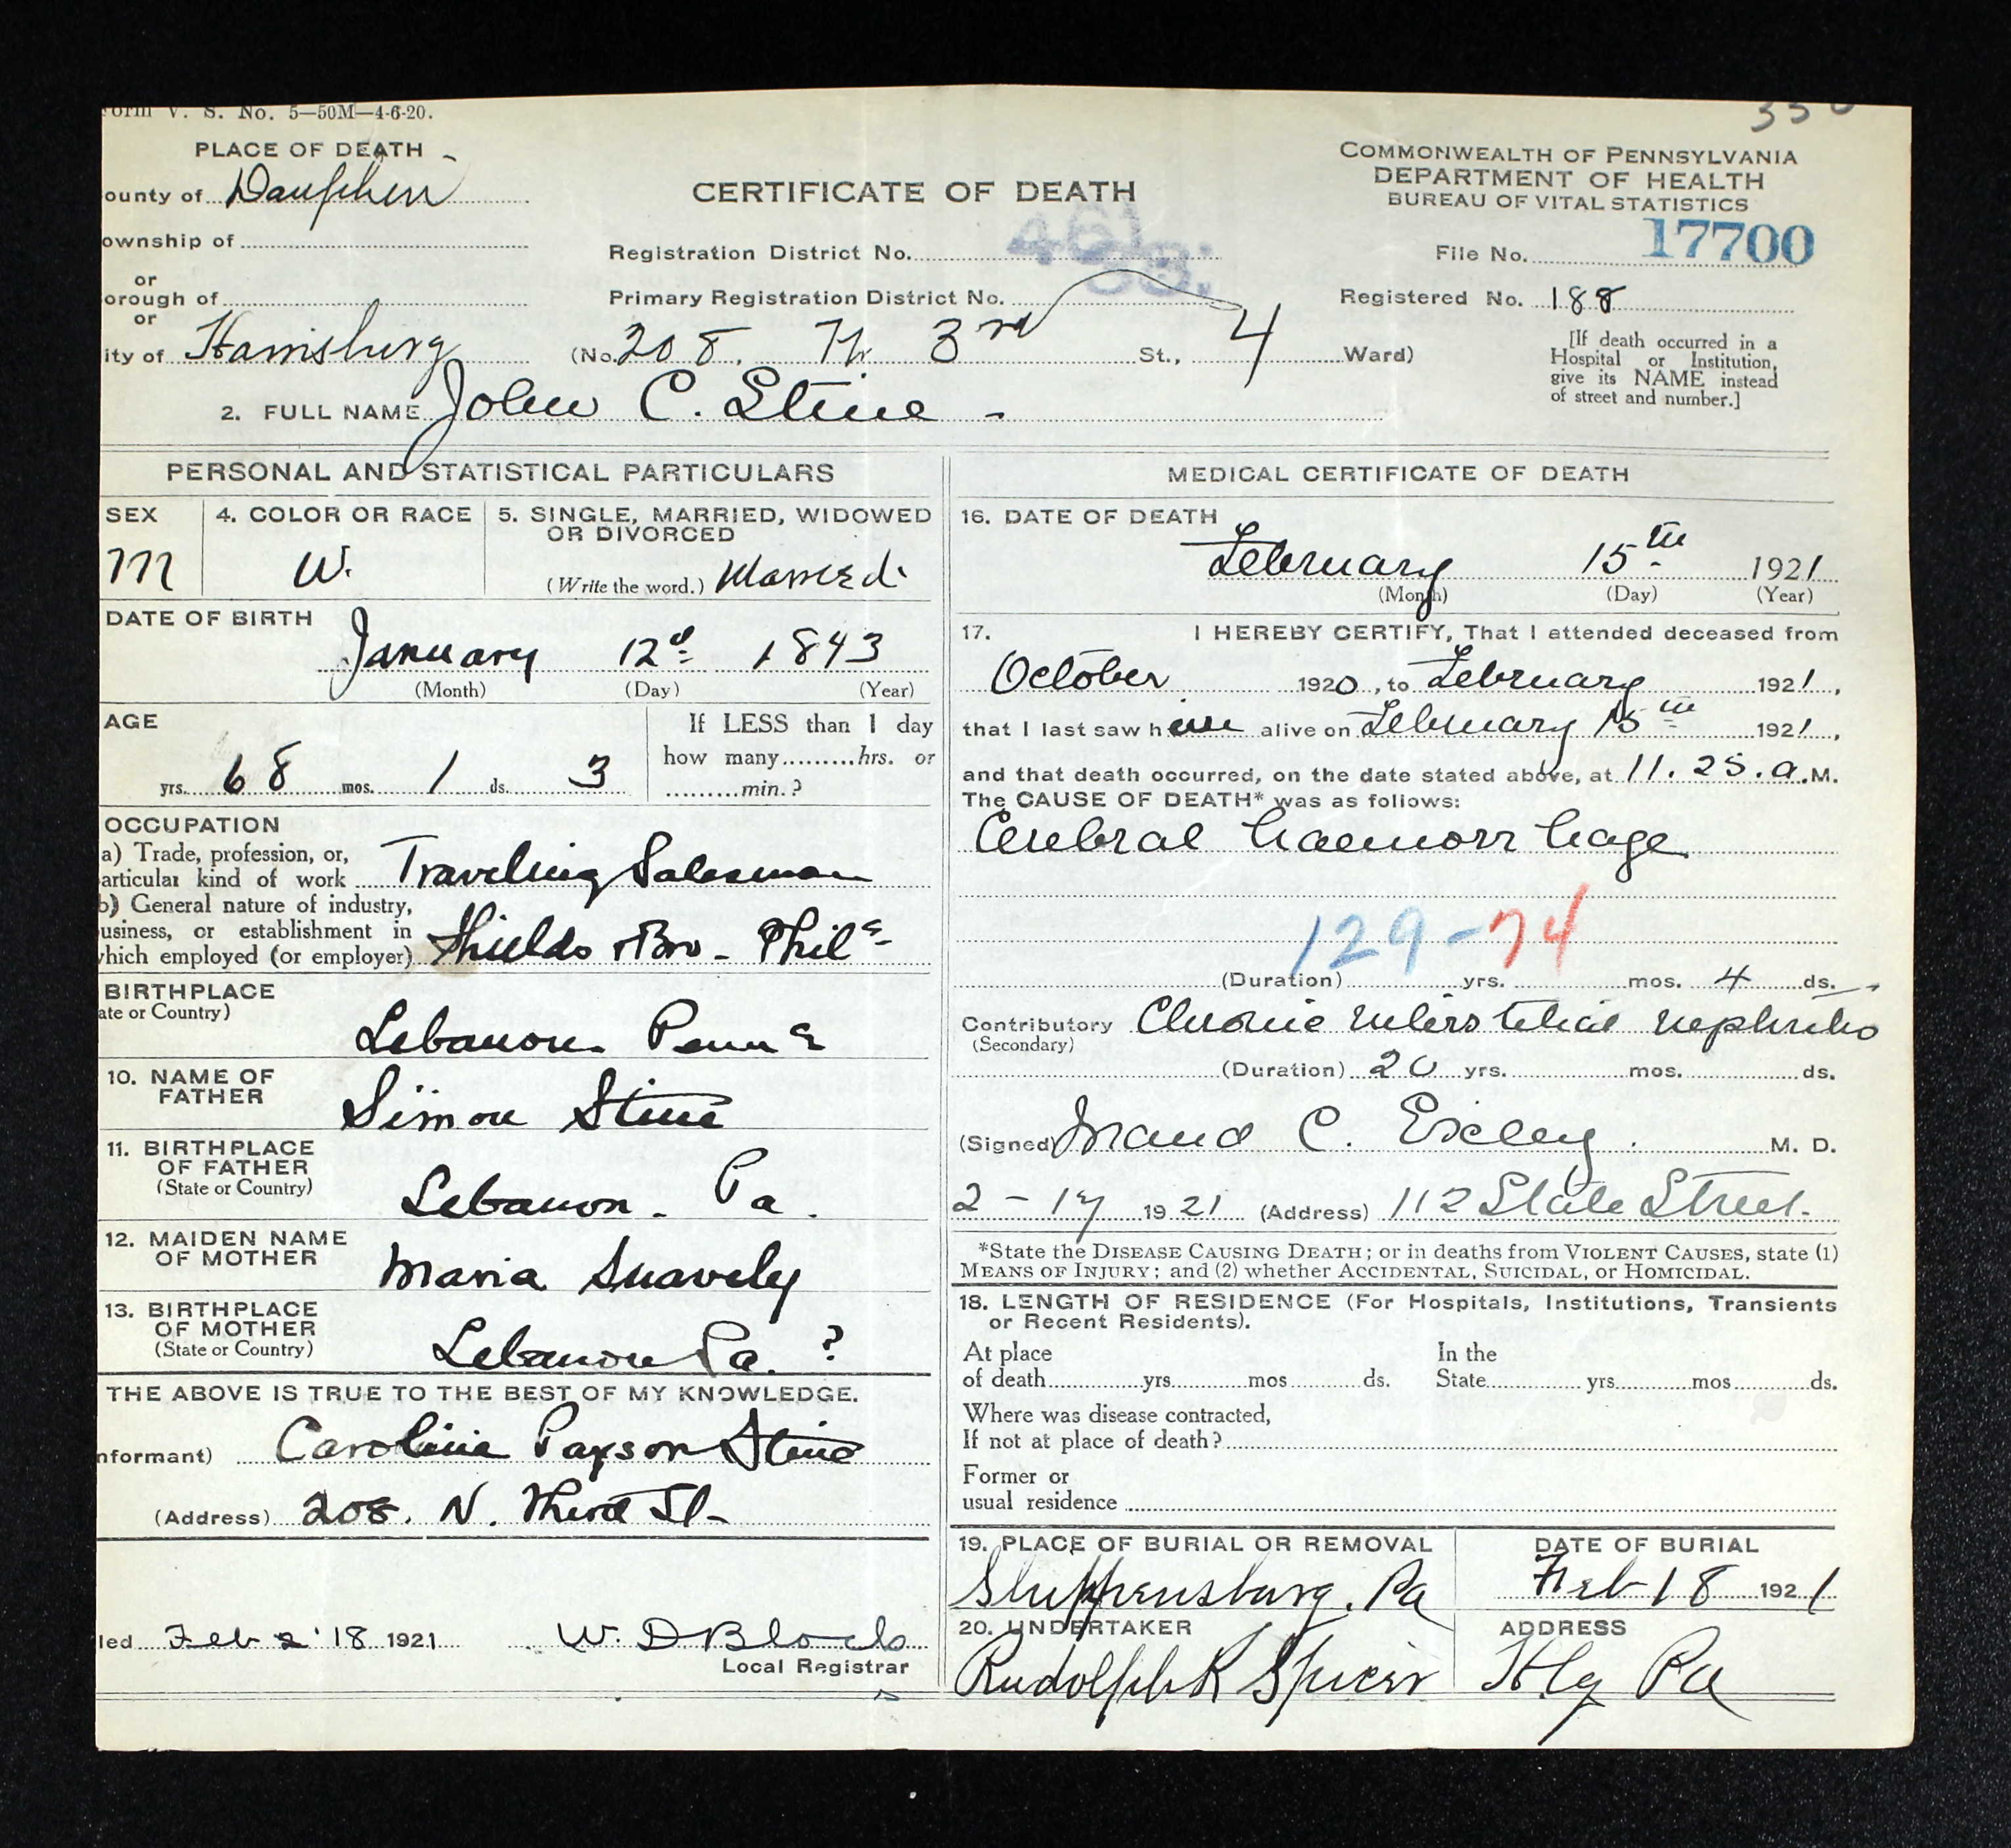 Form V. S. No. 5—50M—4-6-20.
PLACE OF DEATH
ounty of Dauphin
ownship of
or
orough of
or
ity of Harrisburg
CERTIFICATE OF DEATH
Registration District No.
Primary Registration District No.
(No. 208. N. 3rd St., 4 Ward)
COMMONWEALTH OF PENNSYLVANIA
DEPARTMENT OF HEALTH
BUREAU OF VITAL STATISTICS
File No. 17700
Registered No. 188
[If death occurred in a
Hospital or Institution,
give its NAME instead
of street and number.]
2. FULL NAME John C. Stine -
PERSONAL AND STATISTICAL PARTICULARS
SEX
M
4. COLOR OR RACE
W.
5. SINGLE, MARRIED, WIDOWED
OR DIVORCED
(Write the word.) Married.
DATE OF BIRTH
January 12d 1843
(Month) (Day) (Year)
AGE
yrs. 68 mos. 1 ds. 3
If LESS than 1 day
how many.........hrs. or
.........min.?
OCCUPATION
a) Trade, profession, or,
articular kind of work Traveling Salesman
b) General nature of industry,
usiness, or establishment in
which employed (or employer) Shields + Bro - Phila-
BIRTHPLACE
ate or Country)
Lebanon Penna
10. NAME OF
FATHER
Simon Stine
11. BIRTHPLACE
OF FATHER
(State or Country)
Lebanon. Pa.
12. MAIDEN NAME
OF MOTHER
Maria Snavely
13. BIRTHPLACE
OF MOTHER
(State or Country)
Lebanon Pa. ?
THE ABOVE IS TRUE TO THE BEST OF MY KNOWLEDGE.
nformant) Caroline Paxson Stine
(Address) 208. N. Third St-
led Feb 18 1921 W. D Block
Local Registrar
MEDICAL CERTIFICATE OF DEATH
16. DATE OF DEATH
February 15th 1921
(Month) (Day) (Year)
17. I HEREBY CERTIFY, That I attended deceased from
October 1920, to February 1921,
that I last saw him alive on February 15th 1921,
and that death occurred, on the date stated above, at 11.25.a.M.
The CAUSE OF DEATH* was as follows:
Cerebral haemorrhage
129-74
(Duration) yrs. mos. 4 ds.
Contributory Chronic interstitial nephritis
(Secondary)
(Duration) 20 yrs. mos. ds.
(Signed) Maud C. Exley. M. D.
2-17 1921 (Address) 112 State Street.
*State the DISEASE CAUSING DEATH; or in deaths from VIOLENT CAUSES, state (1)
MEANS OF INJURY; and (2) whether ACCIDENTAL, SUICIDAL, or HOMICIDAL.
18. LENGTH OF RESIDENCE (For Hospitals, Institutions, Transients
or Recent Residents).
At place
of death yrs. mos ds.
In the
State yrs. mos ds.
Where was disease contracted,
If not at place of death?
Former or
usual residence
19. PLACE OF BURIAL OR REMOVAL
Shippensburg, Pa
DATE OF BURIAL
Feb 18 1921
20. UNDERTAKER
Rudolph K Spicer
ADDRESS
Hbg Pa